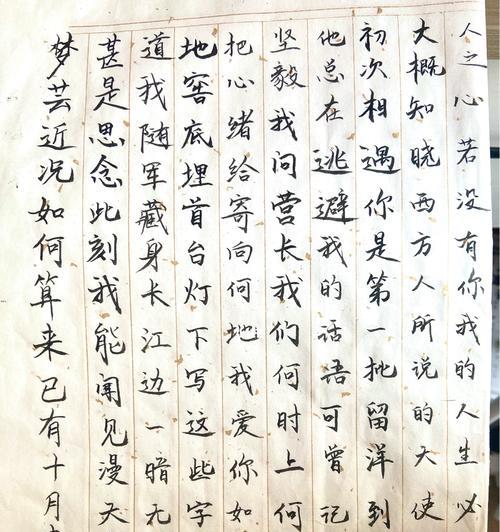 梦芸近况如何算来已有十月
甚是思念此刻我能闻见漫天
道我随军藏身长江边一暗无
地窖底埋首台灯下写这些字
把心绪给寄向何地我爱你如
坚毅我问营长我们何时上何
他总在逃避我的话语可曾记
初次相遇你是第一批留洋到
大概知晓西方人所说的天使
人之心若没有你我的人生必